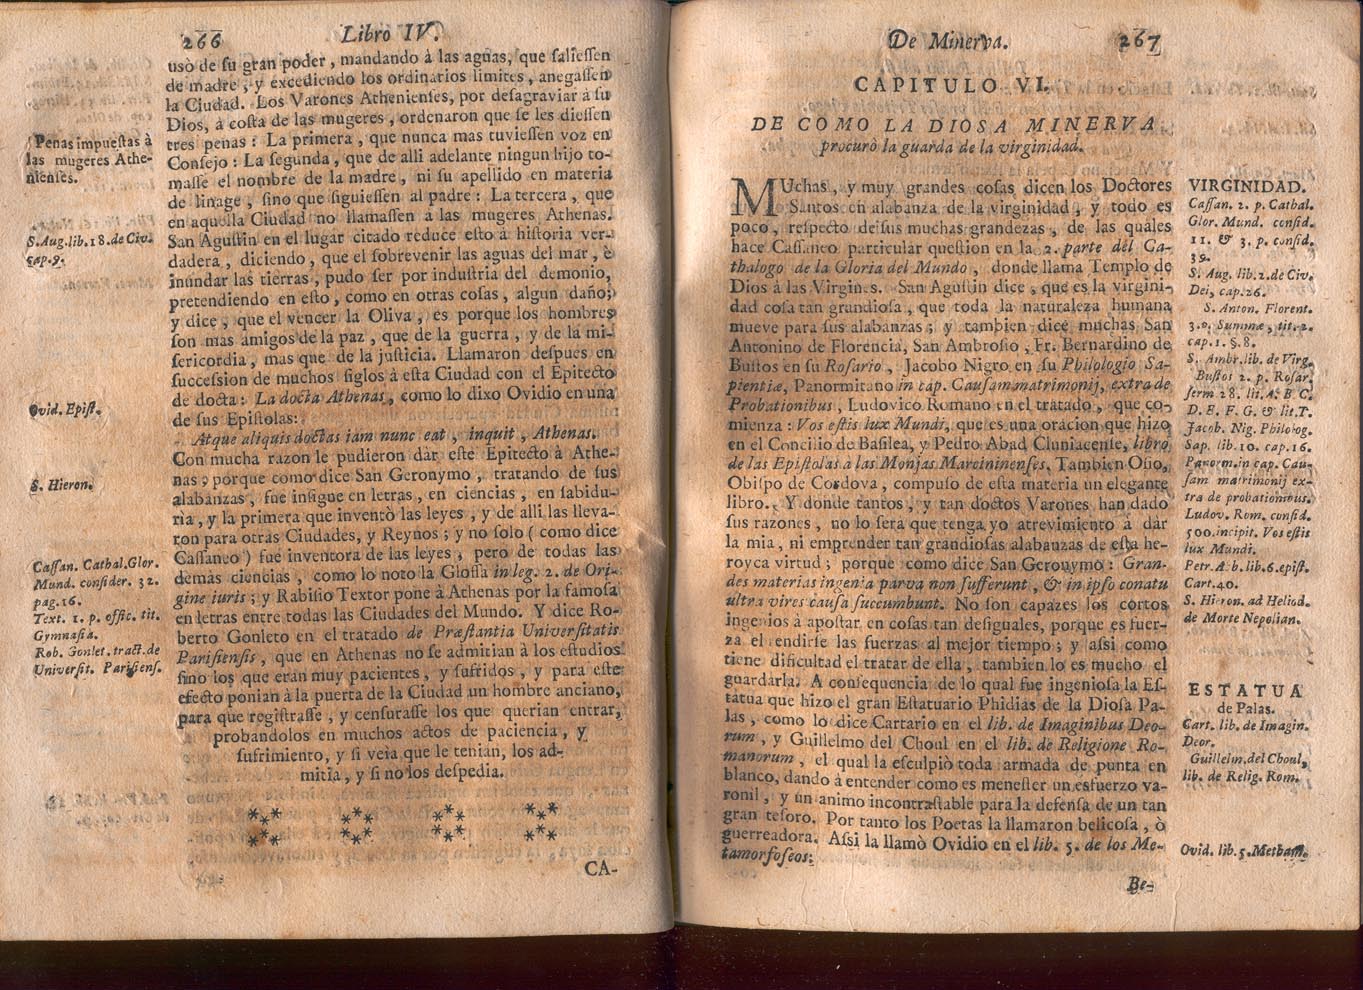 266
Libro IV.
usò de su gran poder, mandando à las aguas, que saliessen
de madre, y excediendo los ordinarios limites, anegassen
la Ciudad. Los Varones Athenienses, por desagraviar à su
Dios, à costa de las mugeres, ordenaron que se les diessen
tres penas: La primera, que nunca mas tuviessen voz en
Consejo: La segunda, que de alli adelante ningun hijo to-
masse el nombre de la madre, ni su apellido en materia
de linage, sino que siguiessen al padre: La tercera, que
en aquella Ciudad no llamassen à las mugeres Athenas.
San Agustin en el lugar citado reduce esto à historia ver-
dadera, diciendo, que el sobrevenir las aguas del mar, è
inundar las tierras, pudo ser por industria del demonio,
pretendiendo en esto, como en otras cosas, algun daño;
y dice, que el vencer la Oliva, es porque los hombres
son mas amigos de la paz, que de la guerra, y de la mi-
sericordia, mas que de la justicia. Llamaron despues en
succession de muchos siglos à esta Ciudad con el Epitecto
de docta: La docta Athenas, como lo dixo Ovidio en una
de sus Epistolas:
Atque aliquis doctas iam nunc eat, inquit, Athenas.
Con mucha razon le pudieron dàr este Epitecto à Athe-
nas; porque como dice San Geronymo, tratando de sus
alabanzas, fue insigne en letras, en ciencias, en sabidu-
rìa, y la primera que inventò las leyes, y de alli las lleva-
ron para otras Ciudades, y Reynos; y no solo (como dice
Cassaneo) fue inventora de las leyes, pero de todas las
demás ciencias, como lo notò la Glossa in leg. 2. de Ori-
gine iuris; y Rabisio Textor pone à Athenas por la famosa
en letras entre todas las Ciudades del Mundo. Y dice Ro-
berto Gonleto en el tratado de Præstantia Universitatis
Parisiensis, que en Athenas no se admitian à los estudios
sino los que eran muy pacientes, y sufridos, y para este
efecto ponian à la puerta de la Ciudad un hombre anciano,
para que registrasse, y censurasse los que querian entrar,
probandolos en muchos actos de paciencia, y
sufrimiento, y si veìa que le tenian, los ad-
mitia, y si no los despedia.
CA-
Penas impuestas à
las mugeres Athe-
nienses.
S. Aug. lib. 18. de Civ.
cap. 9.
Ovid. Epist.
S. Hieron.
Cassan. Cathal. Glor.
Mund. consider. 32.
pag. 16.
Text. 1. p. offic. tit.
Gymnasia.
Rob. Gonlet. tract. de
Universit. Parisiens.
De Minerva.
267
CAPITULO VI.
DE COMO LA DIOSA MINERVA
procurò la guarda de la virginidad.
MUchas, y muy grandes cosas dicen los Doctores
Santos en alabanza de la virginidad, y todo es
poco, respecto de sus muchas grandezas, de las quàles
hace Cassaneo particular question en la 2. parte del Ca-
thalogo de la Gloria del Mundo, donde llama Templo de
Dios à las Virgines. San Agustin dice, que es la virgini-
dad cosa tan grandiosa, que toda la naturaleza humana
mueve para sus alabanzas; y tambien dice muchas San
Antonino de Florencia, San Ambrosio, Fr. Bernardino de
Bustos en su Rosario, Jacobo Nigro en su Philologio Sa-
pientiæ, Panormitano in cap. Causam matrimonij, extra de
Probationibus, Ludovico Romano en el tratado, que co-
mienza: Vos estis lux Mundi, que es una oracion que hizo
en el Concilio de Basilea, y Pedro Abad Cluniacense, libro
de las Epistolas à las Monjas Marcininenses. Tambien Osio,
Obispo de Cordova, compuso de esta materia un elegante
libro. Y donde tantos, y tan doctos Varones han dado
sus razones, no lo serà que tenga yo atrevimiento à dàr
la mia, ni emprender tan grandiosas alabanzas de esta he-
royca virtud; porque como dice San Geronymo: Gran-
des materias ingenia parva non sufferunt, & in ipso conatu
ultra vires causa succumbunt. No son capazes los cortos
ingenios à apostar en cosas tan desiguales, porque es fuer-
za el rendirse las fuerzas al mejor tiempo; y assi como
tiene dificultad el tratar de ella, tambien lo es mucho el
guardarla. A consequencia de lo qual fue ingeniosa la Es-
tatua que hizo el gran Estatuario Phidias de la Diosa Pa-
las, como lo dice Cartario en el lib. de Imaginibus Deo-
rum, y Guillelmo del Choul en el lib. de Religione Ro-
manorum, el qual la esculpiò toda armada de punta en
blanco, dando à entender como es menester un esfuerzo va-
ronil, y un animo incontrastable para la defensa de un tan
gran tesoro. Por tanto los Poetas la llamaron belicosa, ò
guerreadora. Assi la llamò Ovidio en el lib. 5. de los Me-
tamorfoseos:
Be-
VIRGINIDAD.
Cassan. 2. p. Cathal.
Glor. Mund. consid.
11. & 3. p. consid.
39.
S. Aug. lib. 2. de Civ.
Dei, cap. 26.
S. Anton. Florent.
3. p. Summæ, tit. 2.
cap. 1. §. 8.
S. Ambr. lib. de Virg.
Bustos 2. p. Rosar.
serm. 28. lit. A. B. C.
D. E. F. G. & lit. T.
Jacob. Nig. Philolog.
Sap. lib. 10. cap. 16.
Panorm. in cap. Cau-
sam matrimonij ex-
tra de probationibus.
Ludov. Rom. consid.
500. incipit. Vos estis
lux Mundi.
Petr. Ab. lib. 6. epist.
Cart. 40.
S. Hieron. ad Heliod.
de Morte Nepotian.
ESTATUA
de Palas.
Cart. lib. de Imagin.
Deor.
Guillelm. del Choul,
lib. de Relig. Rom.
Ovid. lib. 5. Metham.